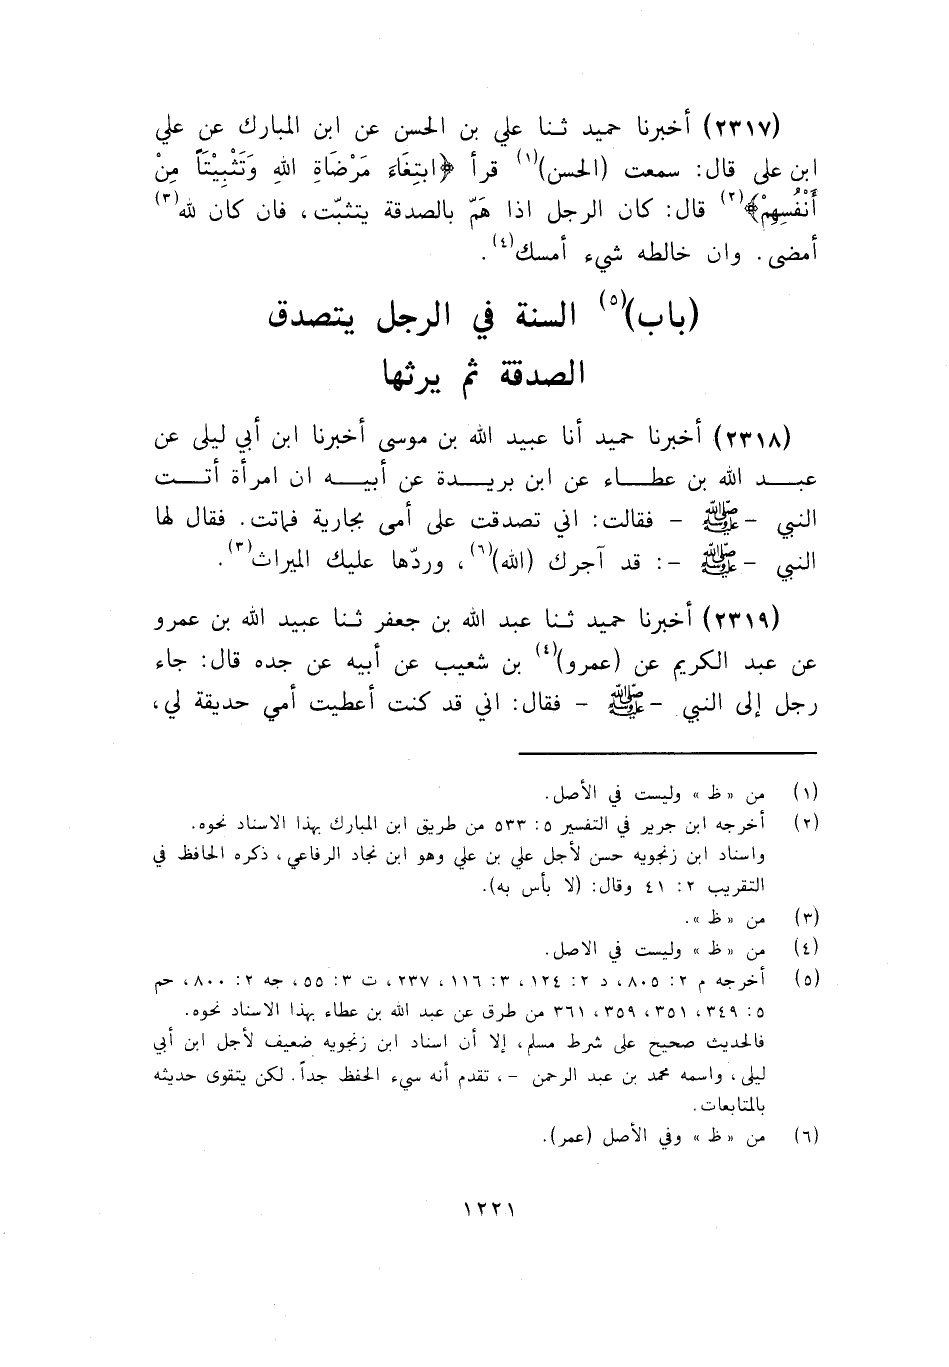 (٢٣١٧) أخبرنا حميد ثنا علي بن الحسن عن ابن المبارك عن علي
ابن على قال: سمعت (الحسن)(١) قرأ ﴿ابتِغَاءَ مَرْضَاةِ اللهِ وَتَثْبِيْتَاً مِنْ
أَنْفُسِهِمْ﴾(٢) قال: كان الرجل اذا هَمّ بالصدقة يتثبّت، فان كان لله(٣)
أمضى. وان خالطه شيء أمسك(٤).
(باب)(٥) السنة في الرجل يتصدق
الصدقة ثم يرثها
(٢٣١٨) أخبرنا حميد أنا عبيد الله بن موسى أخبرنا ابن أبي ليلى عن
عبد الله بن عطاء عن ابن بريدة عن أبيه ان امرأة أتت
النبي - ﷺ - فقالت: اني تصدقت على أمى بجارية فماتت. فقال لها
النبي - ﷺ -: قد آجرك (الله)(٦)، وردّها عليك الميراث(٣).
(٢٣١٩) أخبرنا حميد ثنا عبد الله بن جعفر ثنا عبيد الله بن عمرو
عن عبد الكريم عن (عمرو)(٤) بن شعيب عن أبيه عن جده قال: جاء
رجل إلى النبي - ﷺ - فقال: اني قد كنت أعطيت أمي حديقة لي،
(١) من « ظ » وليست في الأصل.
(٢) أخرجه ابن جرير في التفسير ٥: ٥٣٣ من طريق ابن المبارك بهذا الاسناد نحوه.
واسناد ابن زنجويه حسن لأجل علي بن علي وهو ابن نجاد الرفاعي، ذكره الحافظ في
التقريب ٢: ٤١ وقال: (لا بأس به).
(٣) من « ظ ».
(٤) من « ظ » وليست في الاصل.
(٥) أخرجه م ٢: ٨٠٥، د ٢: ١٢٤، ٣: ١١٦، ٢٣٧، ت ٣: ٥٥، جه ٢: ٨٠٠، حم
٥: ٣٤٩، ٣٥١، ٣٥٩، ٣٦١ من طرق عن عبد الله بن عطاء بهذا الاسناد نحوه.
فالحديث صحيح على شرط مسلم، إلا أن اسناد ابن زنجويه ضعيف لأجل ابن أبي
ليلى، واسمه محمد بن عبد الرحمن -، تقدم أنه سيء الحفظ جداً. لكن يتقوى حديثه
بالمتابعات.
(٦) من « ظ » وفي الأصل (عمر).
١٢٢١